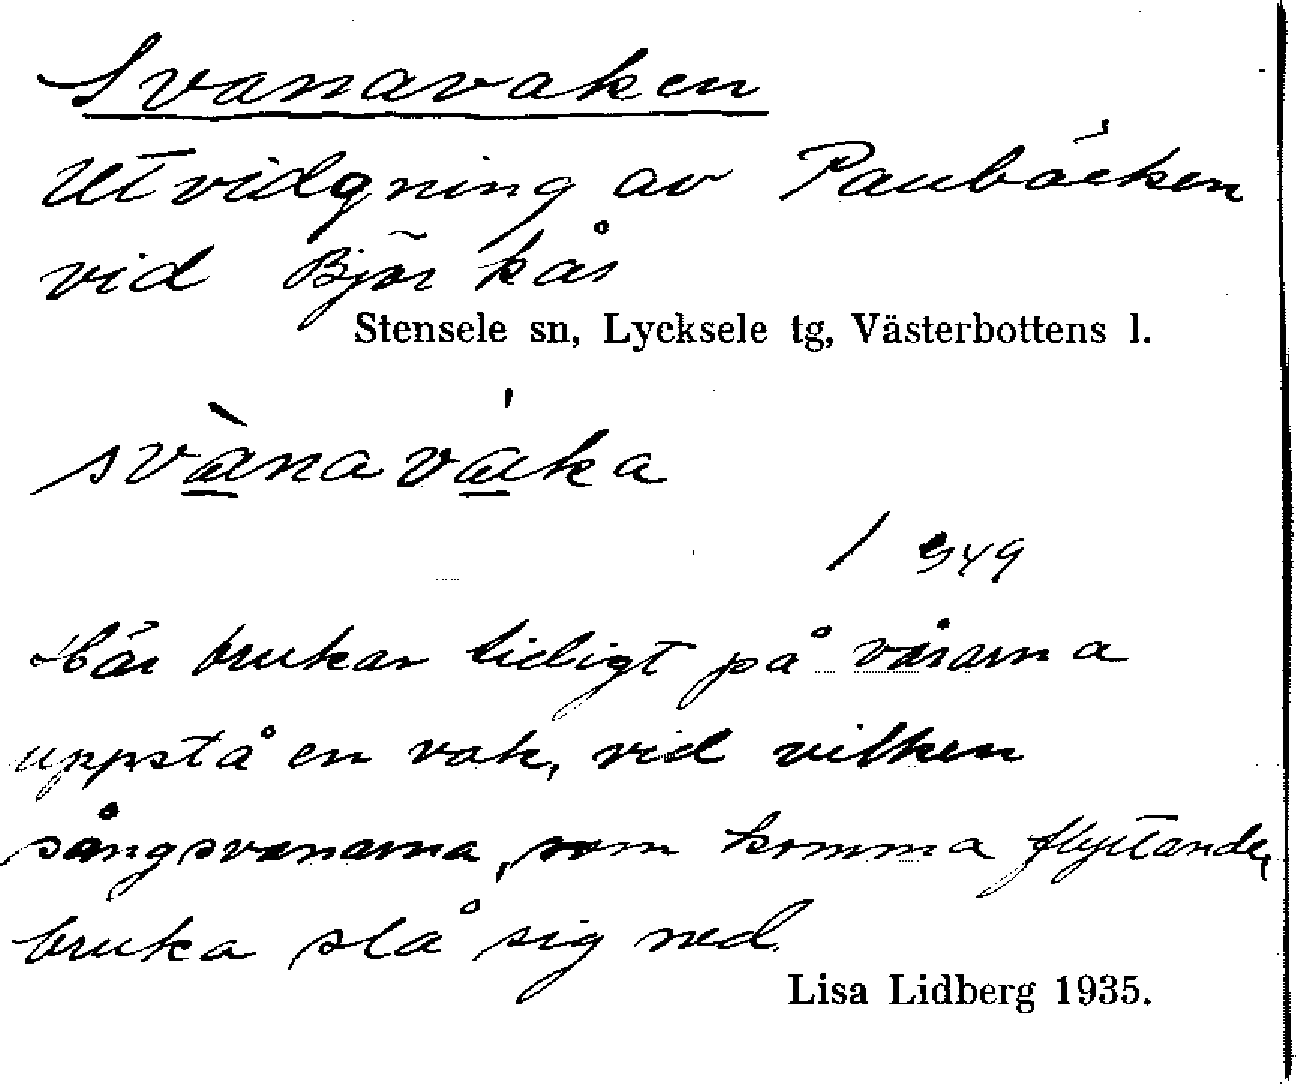 Svanavaken
Utvidgning av Paubäcken
vid Björkås
Stensele sn, Lycksele tg, Västerbottens l.
svànaváka
1 949
Här brukar tidigt på vårarna
uppstå en vak, vid vilken
sångsvanarna, som komma flyttande,
bruka slå sig ned.
Lisa Lidberg 1935.